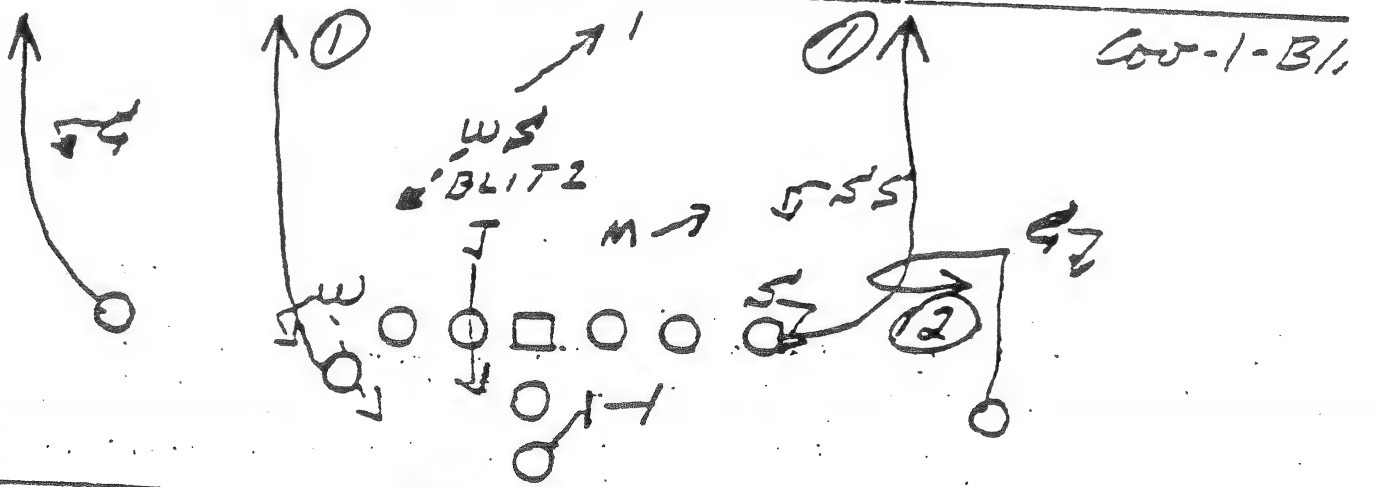 1
1
1
Cov-1-Bli
C
WS
BLITZ
SS
J
M
C
W
S
2